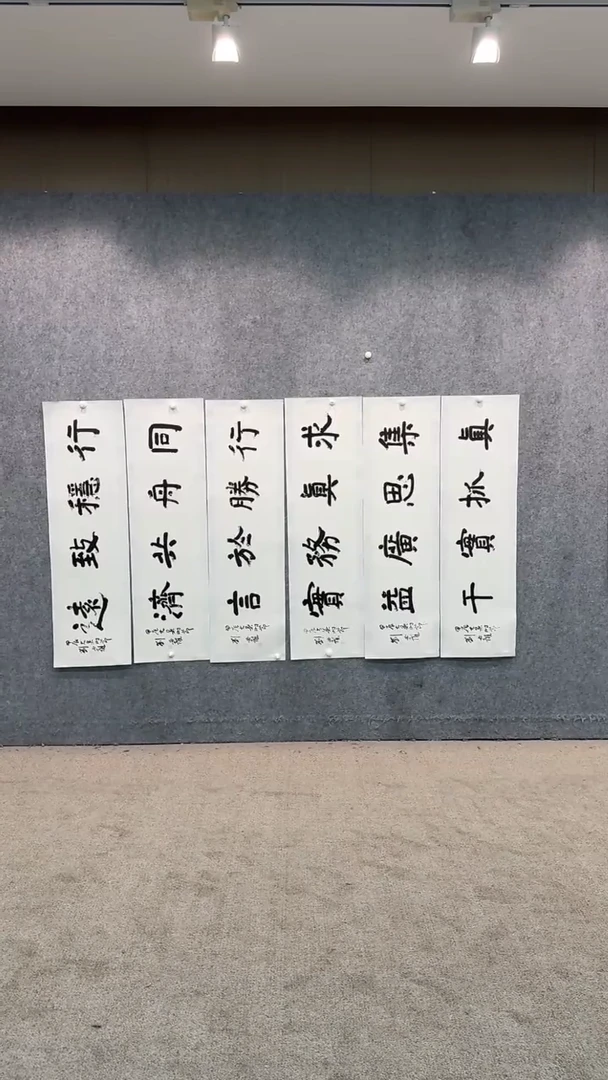 真抓實干
集思廣益
求真務實
行勝於言
同舟共濟
行穩致遠